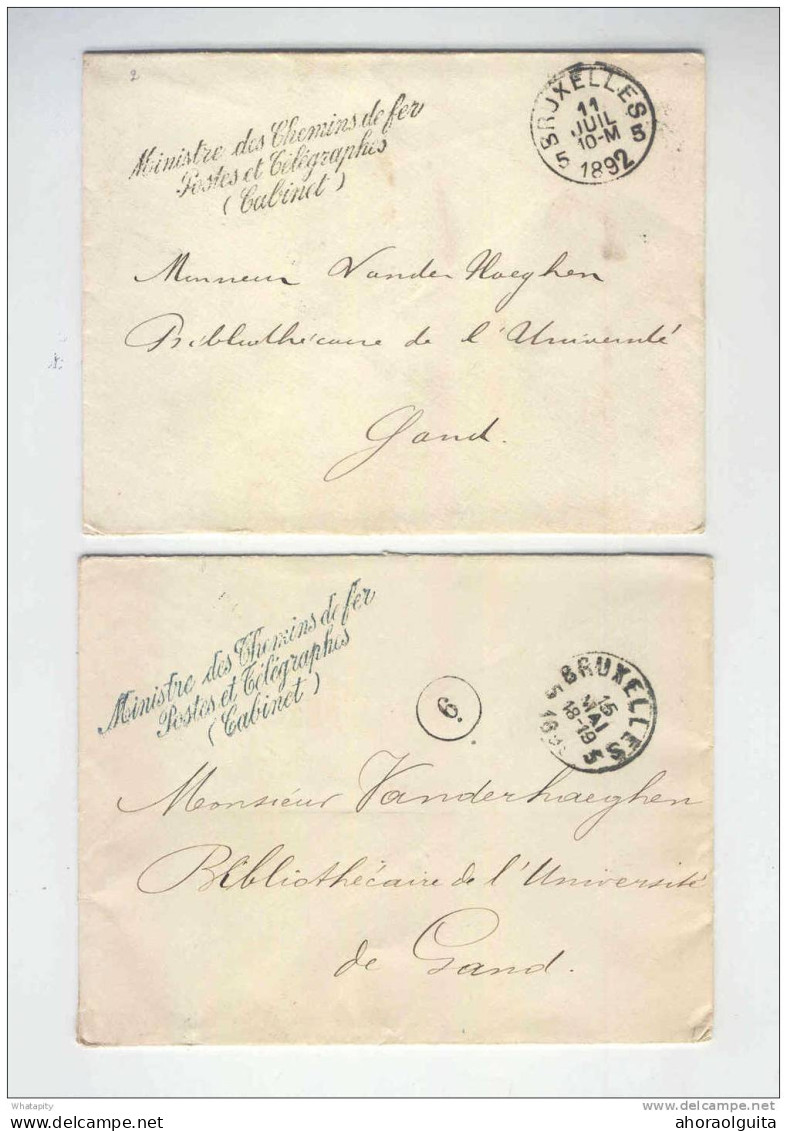 2
Ministre des Chemins de fer
Postes et Télégraphes
(Cabinet)
BRUXELLES
11
JUIL
10-M
5 5
1892
Monsieur Vander Haeghen
Bibliothécaire de l'Université
Gand.
Ministre des Chemins de fer
Postes et Télégraphes
(Cabinet)
6.
BRUXELLES
15
MAI
18-19
5 5
Monsieur Vanderhaeghen
Bibliothécaire de l'Université
de Gand.
Whatapity
delcampe.net
ahoraolguita